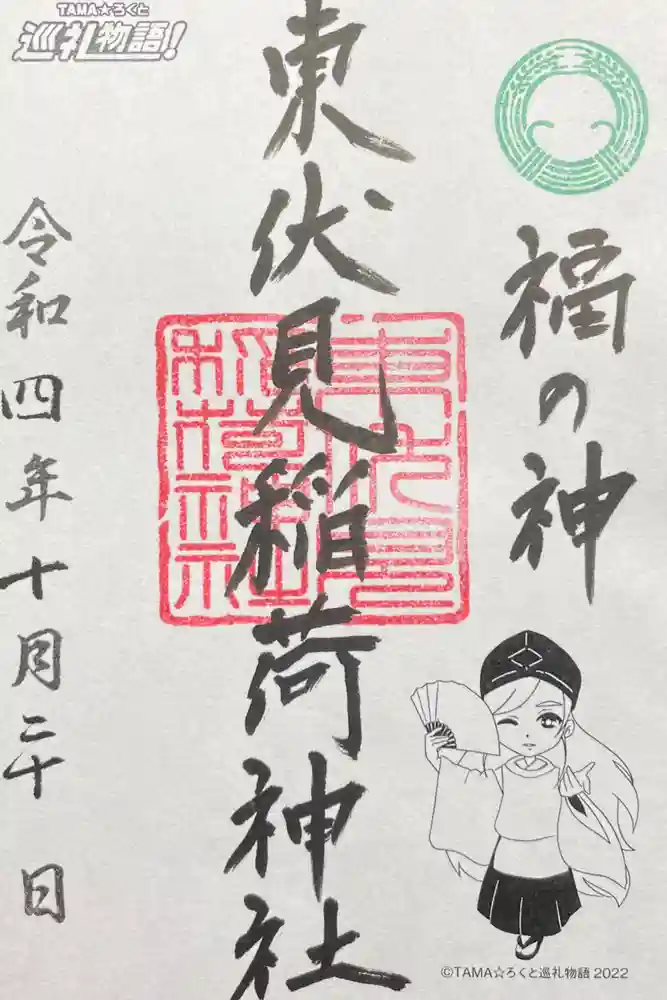 TAMA☆ろくと
巡礼物語!
福の神
東伏見稲荷神社
令和四年十月二十日
東伏見
稲荷神
社
©TAMA☆ろくと巡礼物語 2022